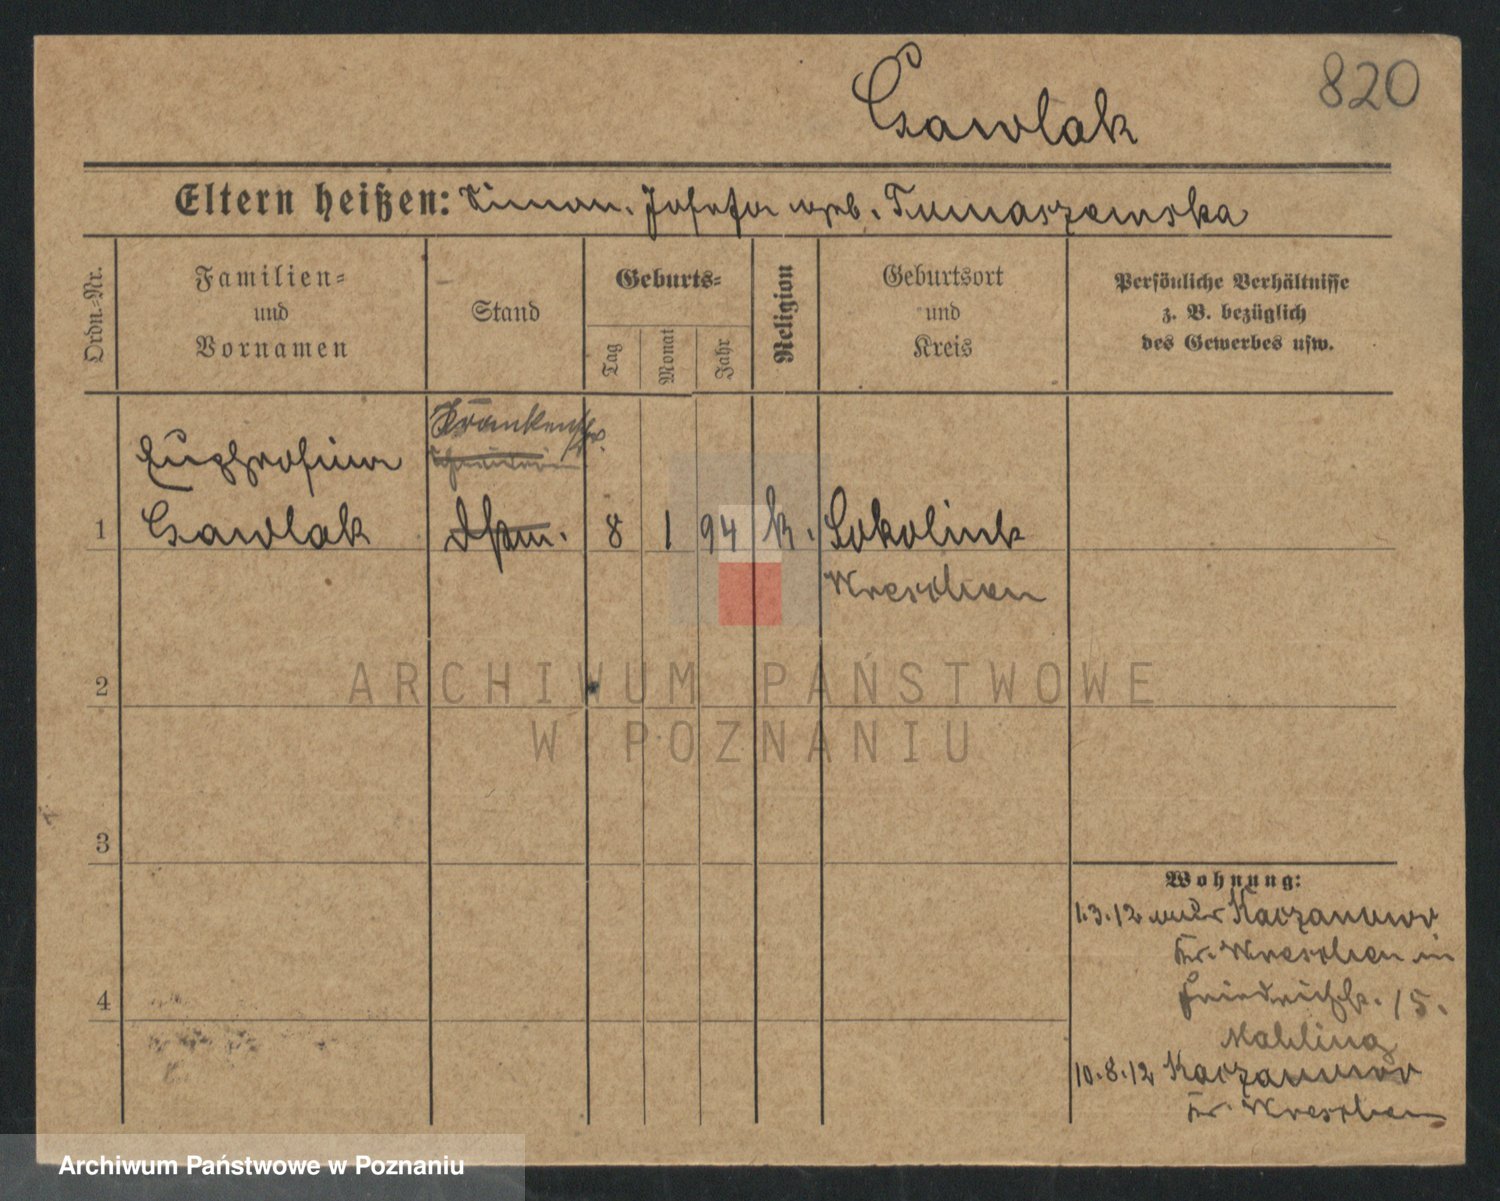 820
Gawlak
Eltern heißen: Simon. Josefa geb. Tumaszewska
Ordn.-Nr.
Familien-
und
Vornamen
Stand
Geburts-
Tag
Monat
Jahr
Religion
Geburtsort
und
Kreis
Persönliche Verhältnisse
z. B. bezüglich
des Gewerbes usw.
Euphrosine
1 Gawlak 8 1 94 k. Sokolnik
Wreschen
2
3
4
Wohnung:
1.3.12 aus Kaczanowo
Kr. Wreschen in
Friedrichstr. 15.
Mahling
10.8.12 Kaczanowo
Kr. Wreschen
ARCHIWUM PAŃSTWOWE
W POZNANIU
Archiwum Państwowe w Poznaniu